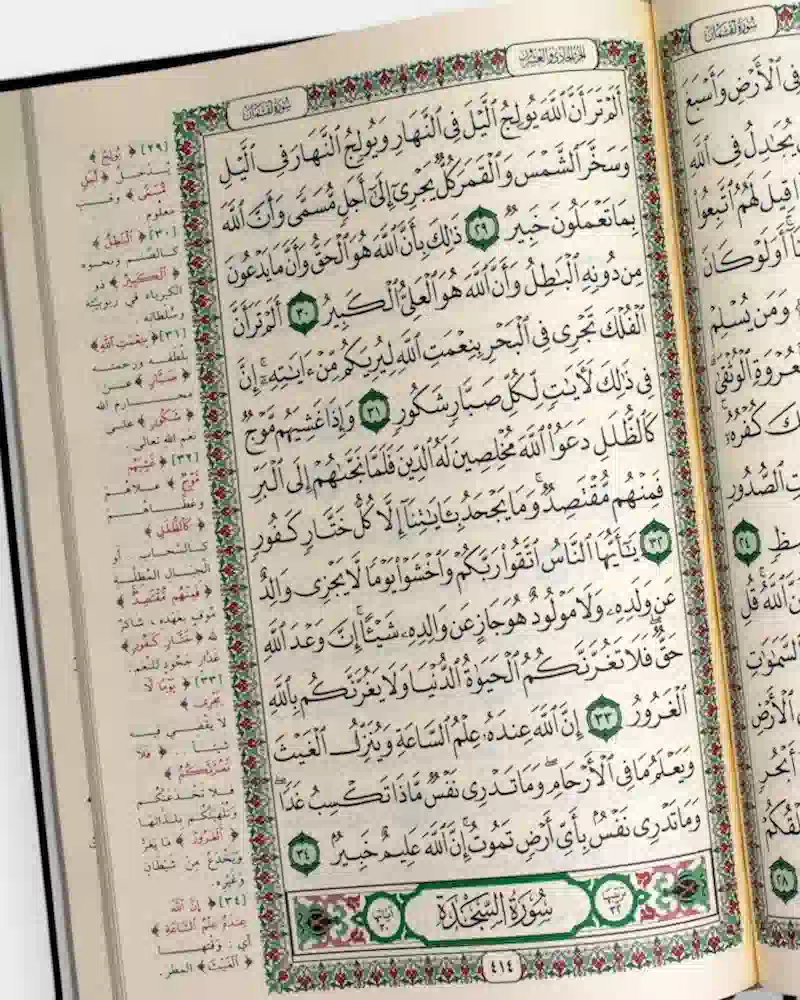 سُورَةُ لُقْمَان
الجُزْءُ الحَادِي وَالعِشْرُونَ
أَلَمْ تَرَ أَنَّ ٱللَّهَ يُولِجُ ٱلَّيْلَ فِى ٱلنَّهَارِ وَيُولِجُ ٱلنَّهَارَ فِى ٱلَّيْلِ
وَسَخَّرَ ٱلشَّمْسَ وَٱلْقَمَرَ كُلٌّ يَجْرِىٓ إِلَىٰٓ أَجَلٍ مُّسَمًّى وَأَنَّ ٱللَّهَ
بِمَا تَعْمَلُونَ خَبِيرٌ ٢٩ ذَٰلِكَ بِأَنَّ ٱللَّهَ هُوَ ٱلْحَقُّ وَأَنَّ مَا يَدْعُونَ
مِن دُونِهِ ٱلْبَٰطِلُ وَأَنَّ ٱللَّهَ هُوَ ٱلْعَلِىُّ ٱلْكَبِيرُ ٣٠ أَلَمْ تَرَ أَنَّ
ٱلْفُلْكَ تَجْرِى فِى ٱلْبَحْرِ بِنِعْمَتِ ٱللَّهِ لِيُرِيَكُم مِّنْ ءَايَٰتِهِۦٓ ۚ إِنَّ
فِى ذَٰلِكَ لَـَٔايَٰتٍ لِّكُلِّ صَبَّارٍ شَكُورٍ ٣١ وَإِذَا غَشِيَهُم مَّوْجٌ
كَٱلظُّلَلِ دَعَوُا۟ ٱللَّهَ مُخْلِصِينَ لَهُ ٱلدِّينَ فَلَمَّا نَجَّىٰهُمْ إِلَى ٱلْبَرِّ
فَمِنْهُم مُّقْتَصِدٌ ۚ وَمَا يَجْحَدُ بِـَٔايَٰتِنَآ إِلَّا كُلُّ خَتَّارٍ كَفُورٍ
٣٢ يَٰٓأَيُّهَا ٱلنَّاسُ ٱتَّقُوا۟ رَبَّكُمْ وَٱخْشَوْا۟ يَوْمًا لَّا يَجْزِى وَالِدٌ
عَن وَلَدِهِۦ وَلَا مَوْلُودٌ هُوَ جَازٍ عَن وَالِدِهِۦ شَيْـًٔا ۚ إِنَّ وَعْدَ ٱللَّهِ
حَقٌّ ۖ فَلَا تَغُرَّنَّكُمُ ٱلْحَيَوٰةُ ٱلدُّنْيَا وَلَا يَغُرَّنَّكُم بِٱللَّهِ
ٱلْغَرُورُ ٣٣ إِنَّ ٱللَّهَ عِندَهُۥ عِلْمُ ٱلسَّاعَةِ وَيُنَزِّلُ ٱلْغَيْثَ
وَيَعْلَمُ مَا فِى ٱلْأَرْحَامِ ۖ وَمَا تَدْرِى نَفْسٌ مَّاذَا تَكْسِبُ غَدًا ۖ
وَمَا تَدْرِى نَفْسٌۢ بِأَىِّ أَرْضٍ تَمُوتُ ۚ إِنَّ ٱللَّهَ عَلِيمٌ خَبِيرٌۢ ٣٤
سُورَةُ السَّجْدَة
آياتها ٣٠
ترتيبها ٣٢
٤١٤
[٢٩] ﴿ يُولِجُ ﴾
يُدخل ﴿ أَجَلٍ
مُّسَمًّى ﴾ وقت
معلوم .
[٣٠] ﴿ ٱلْبَٰطِلُ ﴾
كالصنم ونحوه
﴿ ٱلْكَبِيرُ ﴾ ذو
الكبرياء في ربوبيته
وسلطانه .
[٣١] ﴿ بِنِعْمَتِ ٱللَّهِ ﴾
بلطفه ورحمته
﴿ صَبَّارٍ ﴾ عن
محارم الله
﴿ شَكُورٍ ﴾ على
نعم الله تعالى .
[٣٢] ﴿ غَشِيَهُم
مَّوْجٌ ﴾ علاهم
وغطاهم
﴿ كَٱلظُّلَلِ ﴾
كالسحاب أو
الجبال المظلة
﴿ فَمِنْهُم مُّقْتَصِدٌ ﴾
موفٍ بعهده ، شاكر
لله ﴿ خَتَّارٍ كَفُورٍ ﴾
غدّار جحود للنعم .
[٣٣] ﴿ يَوْمًا لَّا
يَجْزِى ﴾
لا يقضي فيه
شيئا ... ﴿ فَلَا
تَغُرَّنَّكُمُ ﴾
فلا تخدعنكم
وتلهينكم بلذاتها
﴿ ٱلْغَرُورُ ﴾ ما يغرّ
ويخدع من شيطان
وغيره .
[٣٤] ﴿ إِنَّ ٱللَّهَ
عِندَهُۥ عِلْمُ ٱلسَّاعَةِ ﴾
أي : وقتها
﴿ ٱلْغَيْثَ ﴾ المطر .
سُورَةُ لُقْمَان
فِى ٱلْأَرْضِ وَأَسْبَغَ
يُجَٰدِلُ فِى ٱللَّهِ
قِيلَ لَهُمُ ٱتَّبِعُوا۟
أَوَلَوْ كَانَ
وَمَن يُسْلِمْ
ٱلْوُثْقَىٰ
كُفْرُهُۥٓ
ٱلصُّدُورِ
٢٤
ٱللَّهِ ۚ قُلِ
ٱلسَّمَٰوَٰتِ
ٱلْأَرْضِ
أَبْحُرٍ
٢٨